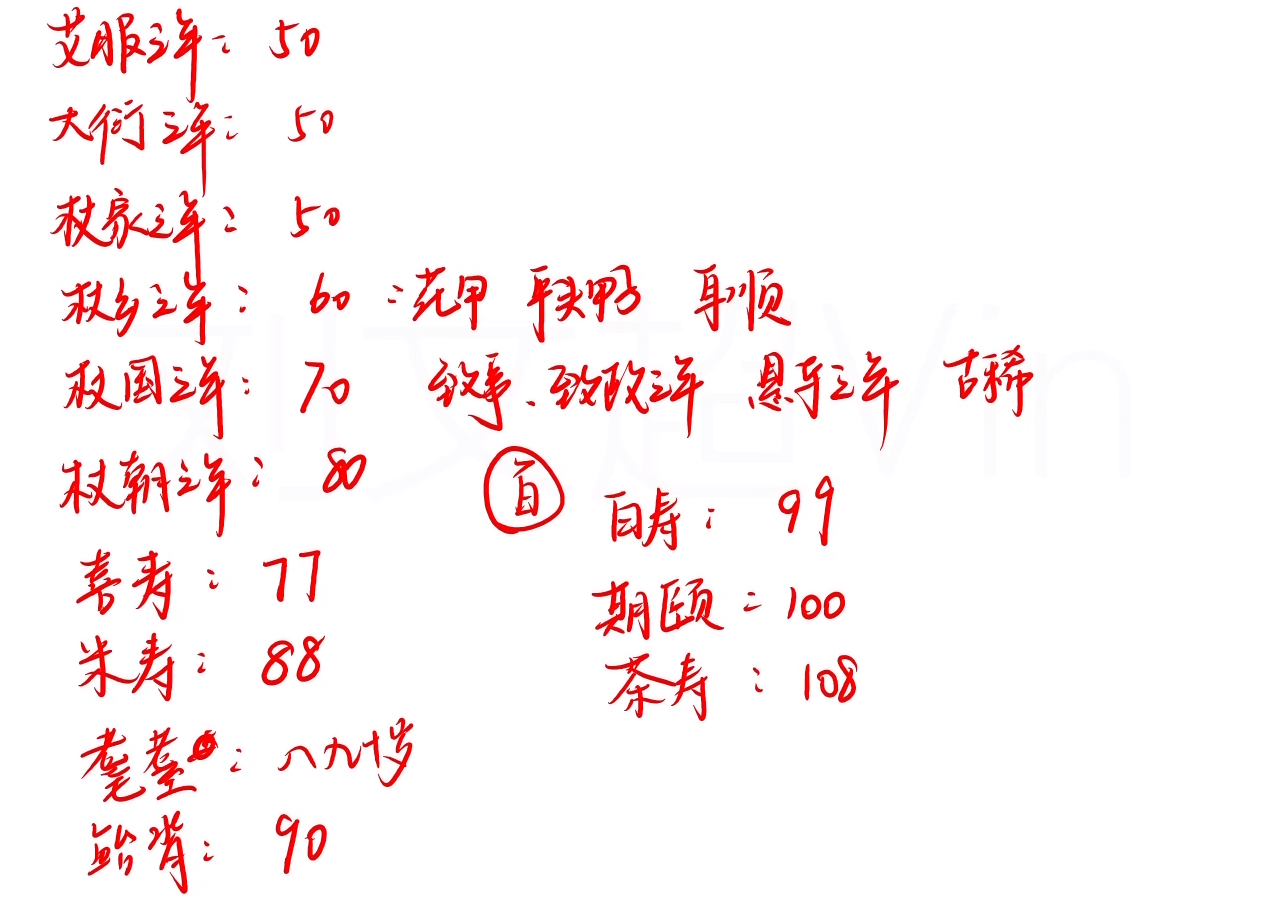 艾服之年：50
大衍之年：50
杖家之年：50
杖乡之年：60：花甲 平头甲子 耳顺
杖国之年：70 致事、致政之年 悬车之年 古稀
杖朝之年：80
喜寿：77
米寿：88
耄耋：八九十岁
鲐背：90
百
白寿：99
期颐：100
茶寿：108